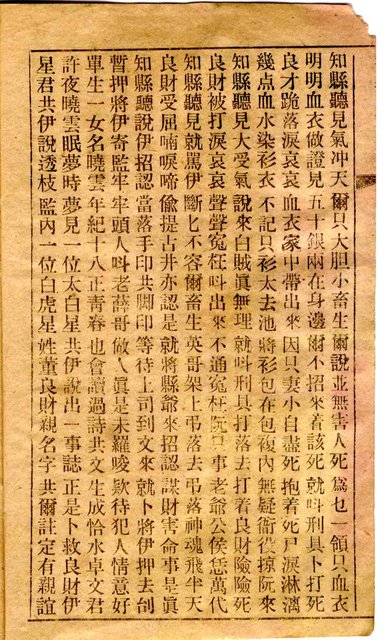 知縣聽見氣冲天爾只大胆小畜生爾說並無害人死為乜一領只血衣
明明血衣做證見五十銀兩在身邊爾不招來着該死就呌刑具卜打死
良才跪落淚哀哀血衣家中帶出來因只妻小自盡死抱着死尸淚淋漓
幾点血水染衫衣不記只衫太去池將衫包在包複內無疑衛役掠阮來
知縣聽見大受氣說來白賊眞無理就呌刑具打落去打着良財險險死
良財被打淚哀哀聲聲冤枉呌出來不通冤枉阮只事老爺公侯恁萬代
知縣聽見就罵伊斷乜不容爾畜生英哥架上弔落去弔落神魂飛半天
良財受屈喃唳啼偷提占井亦認是就將縣爺來招認謀財害命事是眞
知縣聽說伊招認當落手印共脚印等待上司到文來就卜將伊押去刣
暫押將伊寄監牢牢頭人呌老薛哥做人眞是未羅唆欵待犯人情意好
單生一女名曉雲年紀十八正青春也會讀過詩共文生成恰水卓文君
許夜曉雲眠夢時夢見一位太白星共伊說出一事誌正是卜救良財伊
星君共伊說透枝監內一位白虎星姓董良財親名字共爾註定有親誼